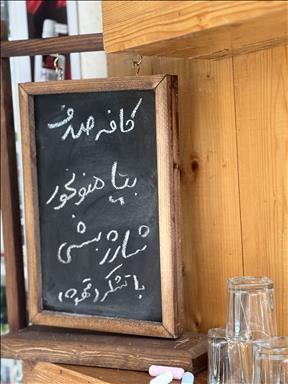 کافه صدف
بیا منو بخور
شارژ بشی
با تشکر قهوه